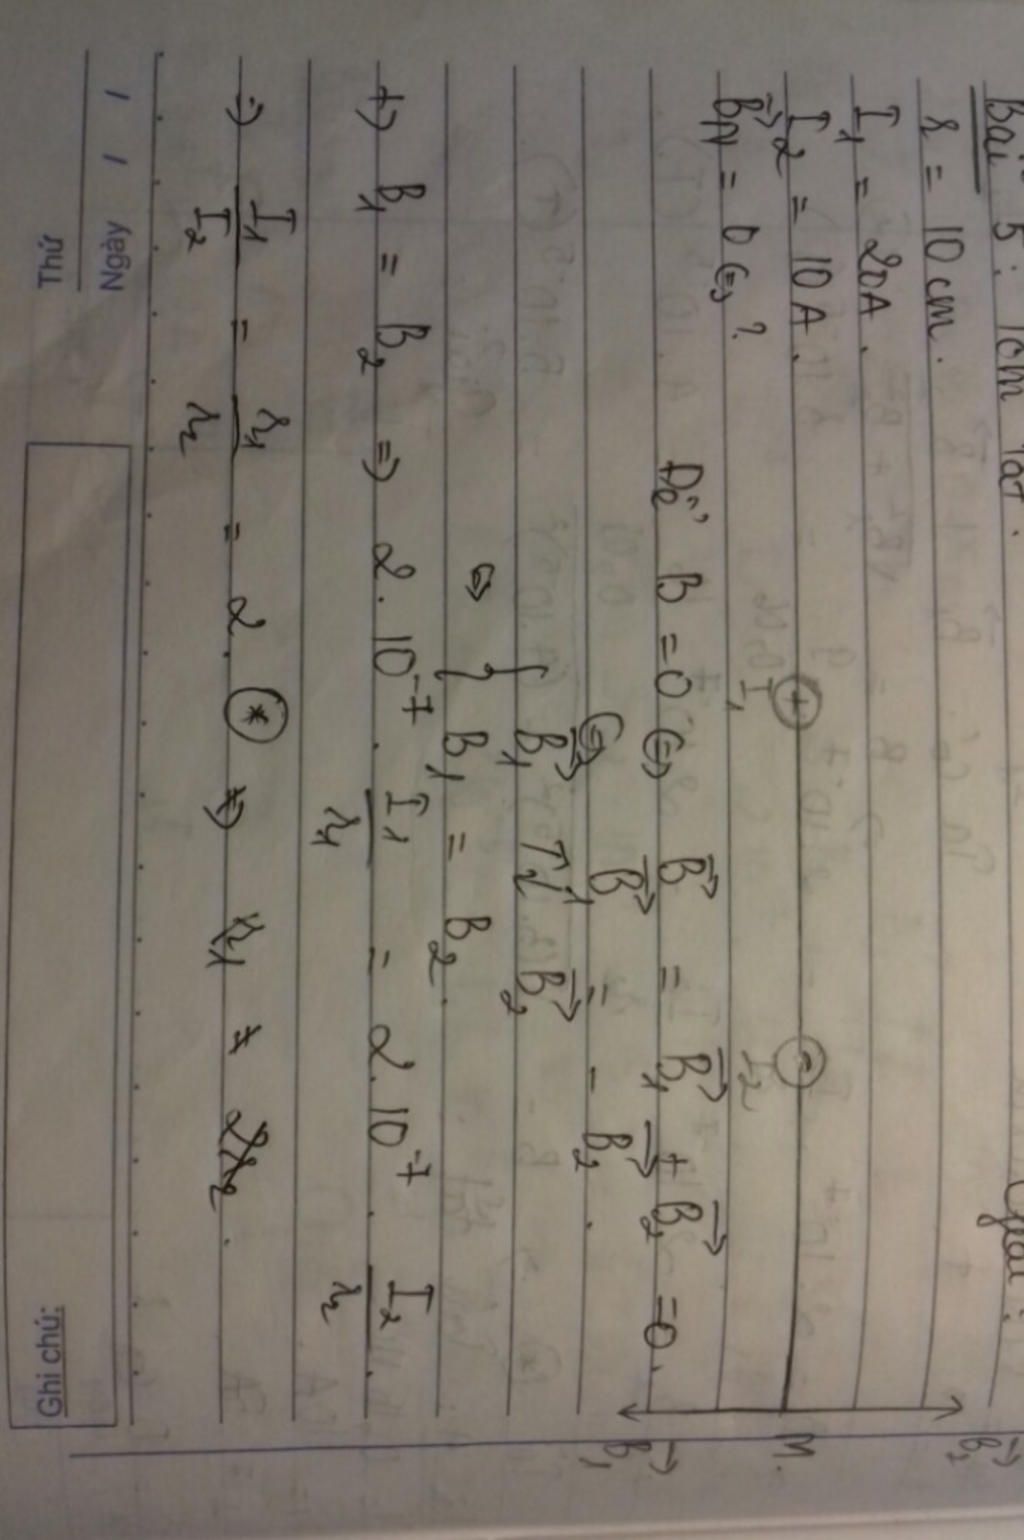 Bài 5: Tóm tắt. Giải:
r = 10 cm.
I₁ = 20A.
I₂ = 10A.
B⃗M = 0 ⇔ ?
I₁ + I₂ • M. B⃗₁ B⃗₂
Để B = 0 ⇔ B⃗ = B⃗₁ + B⃗₂ = 0.
⇔ B⃗₁ = - B⃗₂.
⇔ { B⃗₁ ↑↓ B⃗₂
B₁ = B₂.
+) B₁ = B₂ ⇒ 2.10⁻⁷ . I₁/r₁ = 2.10⁻⁷ . I₂/r₂.
⇒ I₁/I₂ = r₁/r₂ = 2. (*) ⇒ r₁ = 2r₂.
Thứ
Ngày / /
Ghi chú: